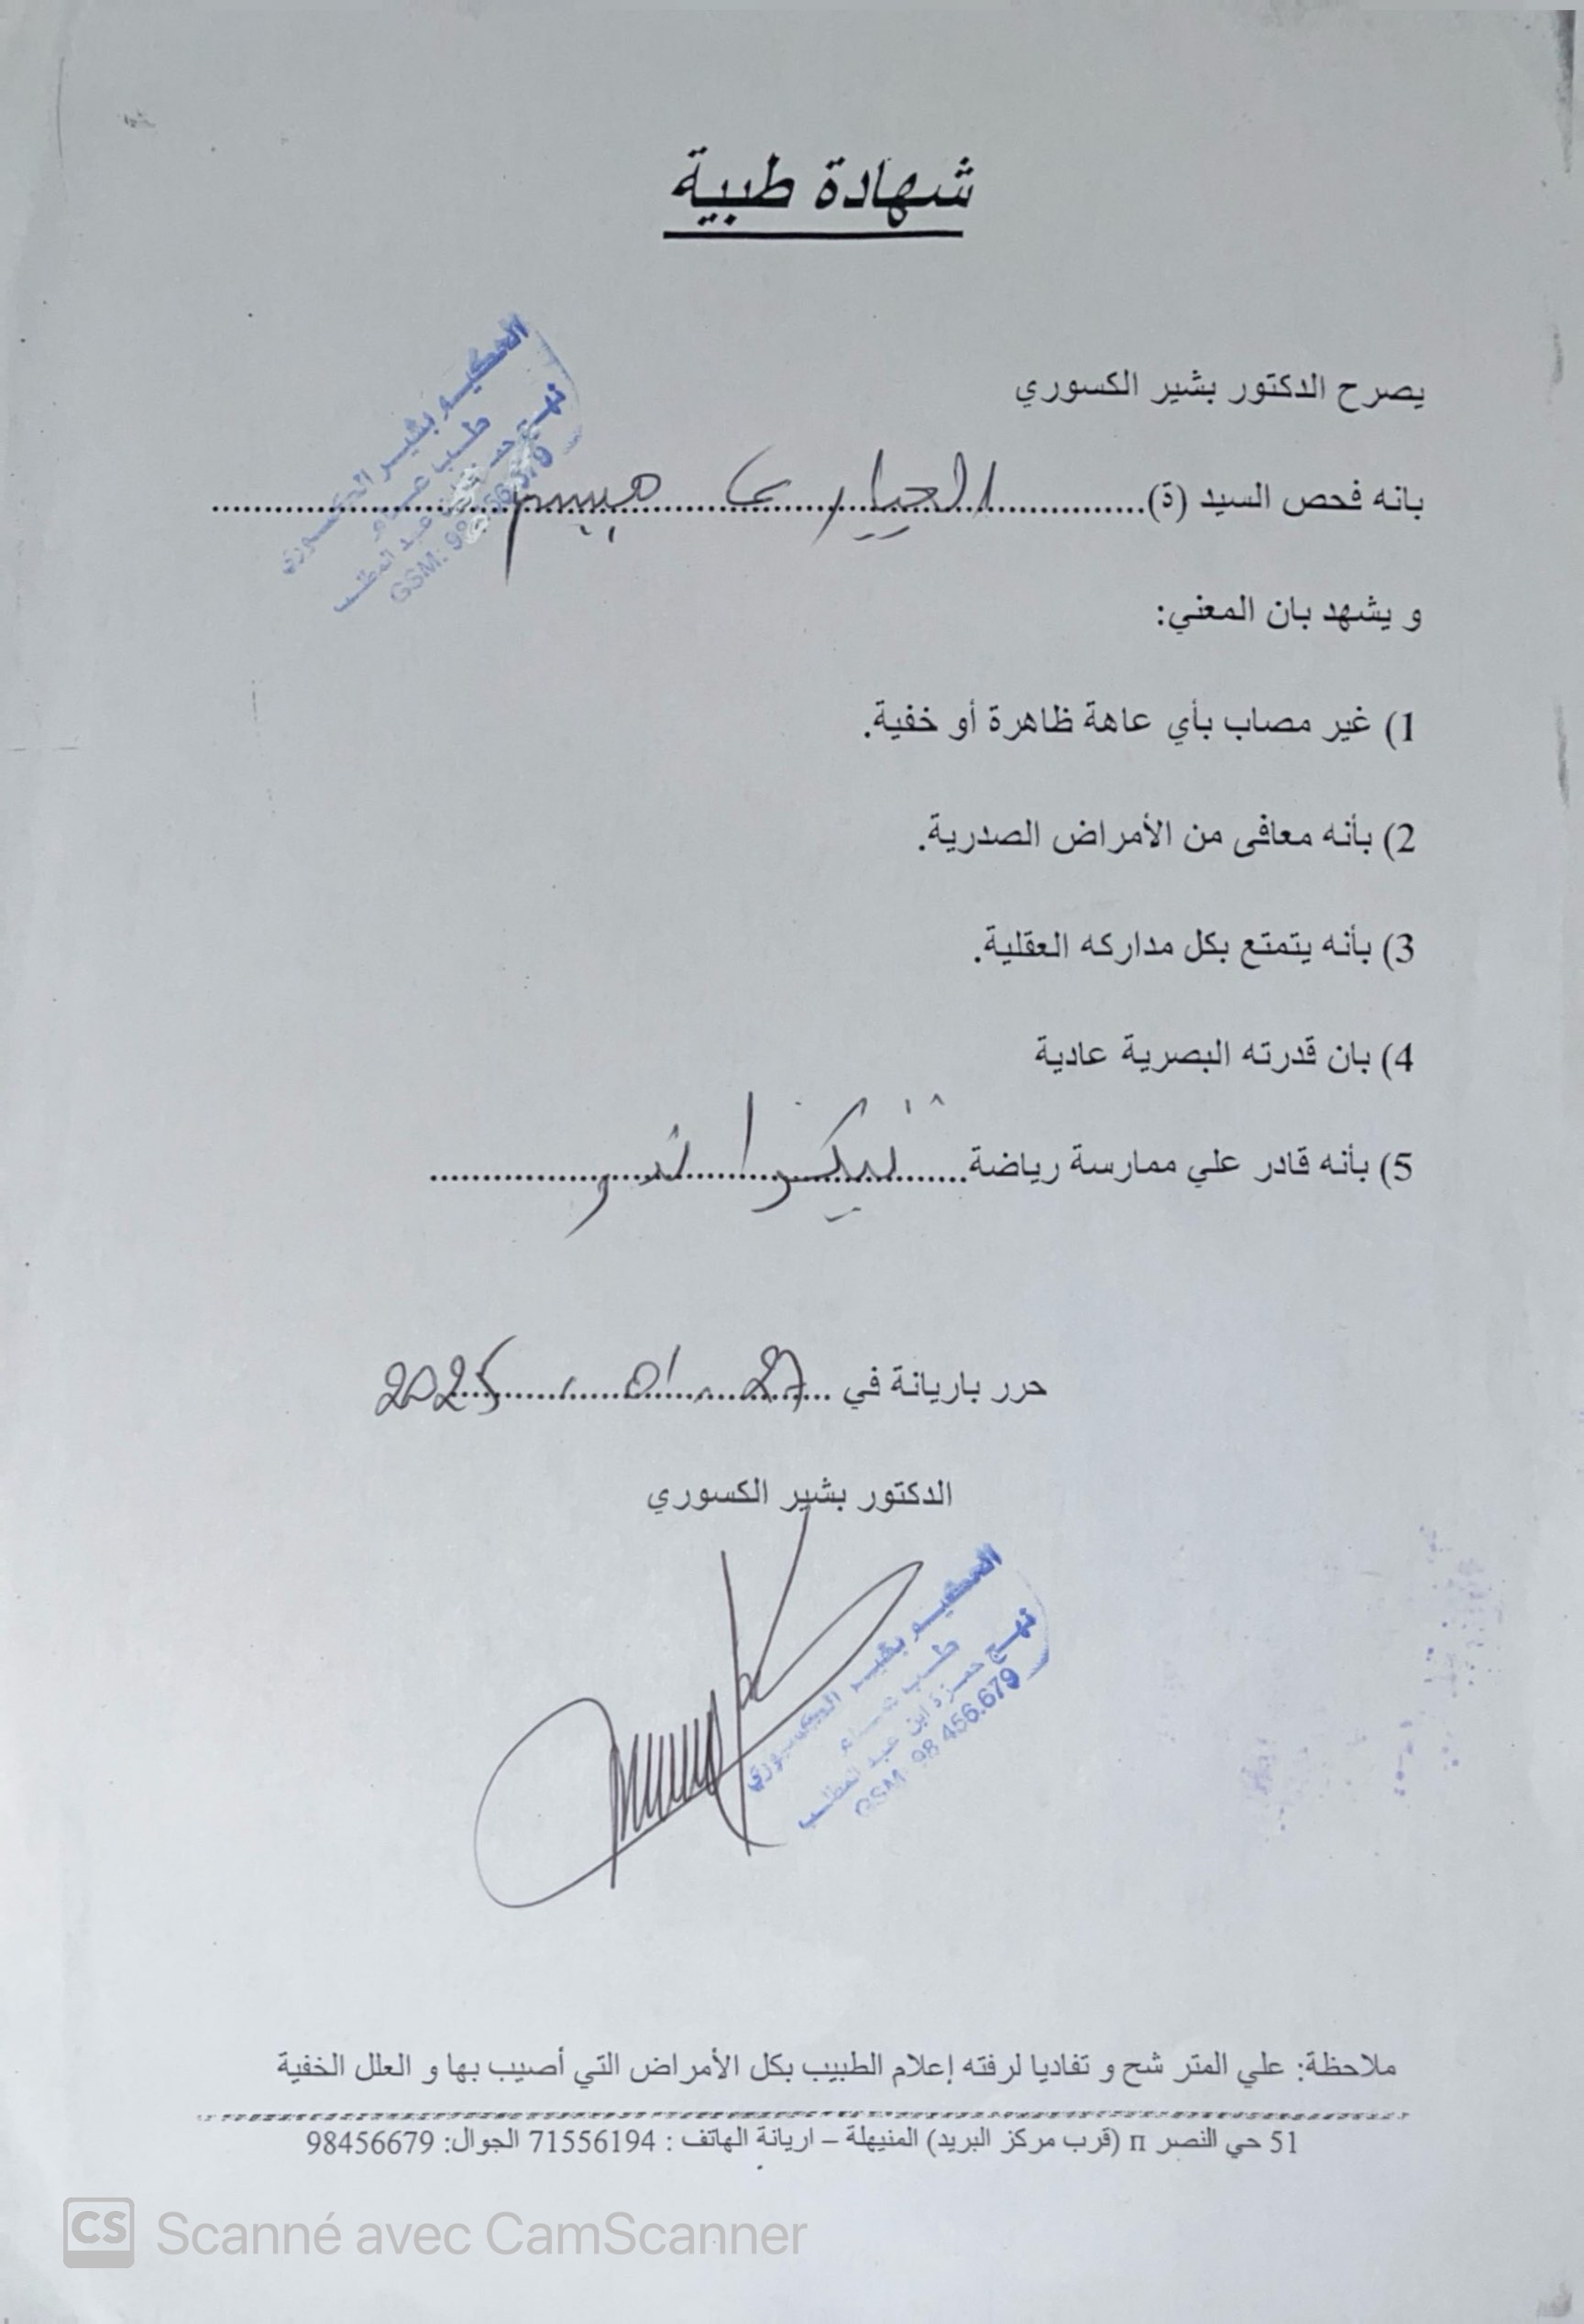 شهادة طبية
يصرح الدكتور بشير الكسوري
بانه فحص السيد (ة)
و يشهد بان المعني:
1) غير مصاب بأي عاهة ظاهرة أو خفية.
2) بأنه معافى من الأمراض الصدرية.
3) بأنه يتمتع بكل مداركه العقلية.
4) بان قدرته البصرية عادية
5) بأنه قادر علي ممارسة رياضة تيكواندو
حرر باريانة في 27 01 2025
الدكتور بشير الكسوري
الحكيم بشير الكسوري
طب عام
نهج حمزة ابن عبد المطلب
GSM: 98 456.679
ملاحظة: علي المتر شح و تفاديا لرفته إعلام الطبيب بكل الأمراض التي أصيب بها و العلل الخفية
51 حي النصر п (قرب مركز البريد) المنيهلة – اريانة الهاتف : 71556194 الجوال: 98456679
CS Scanné avec CamScanner